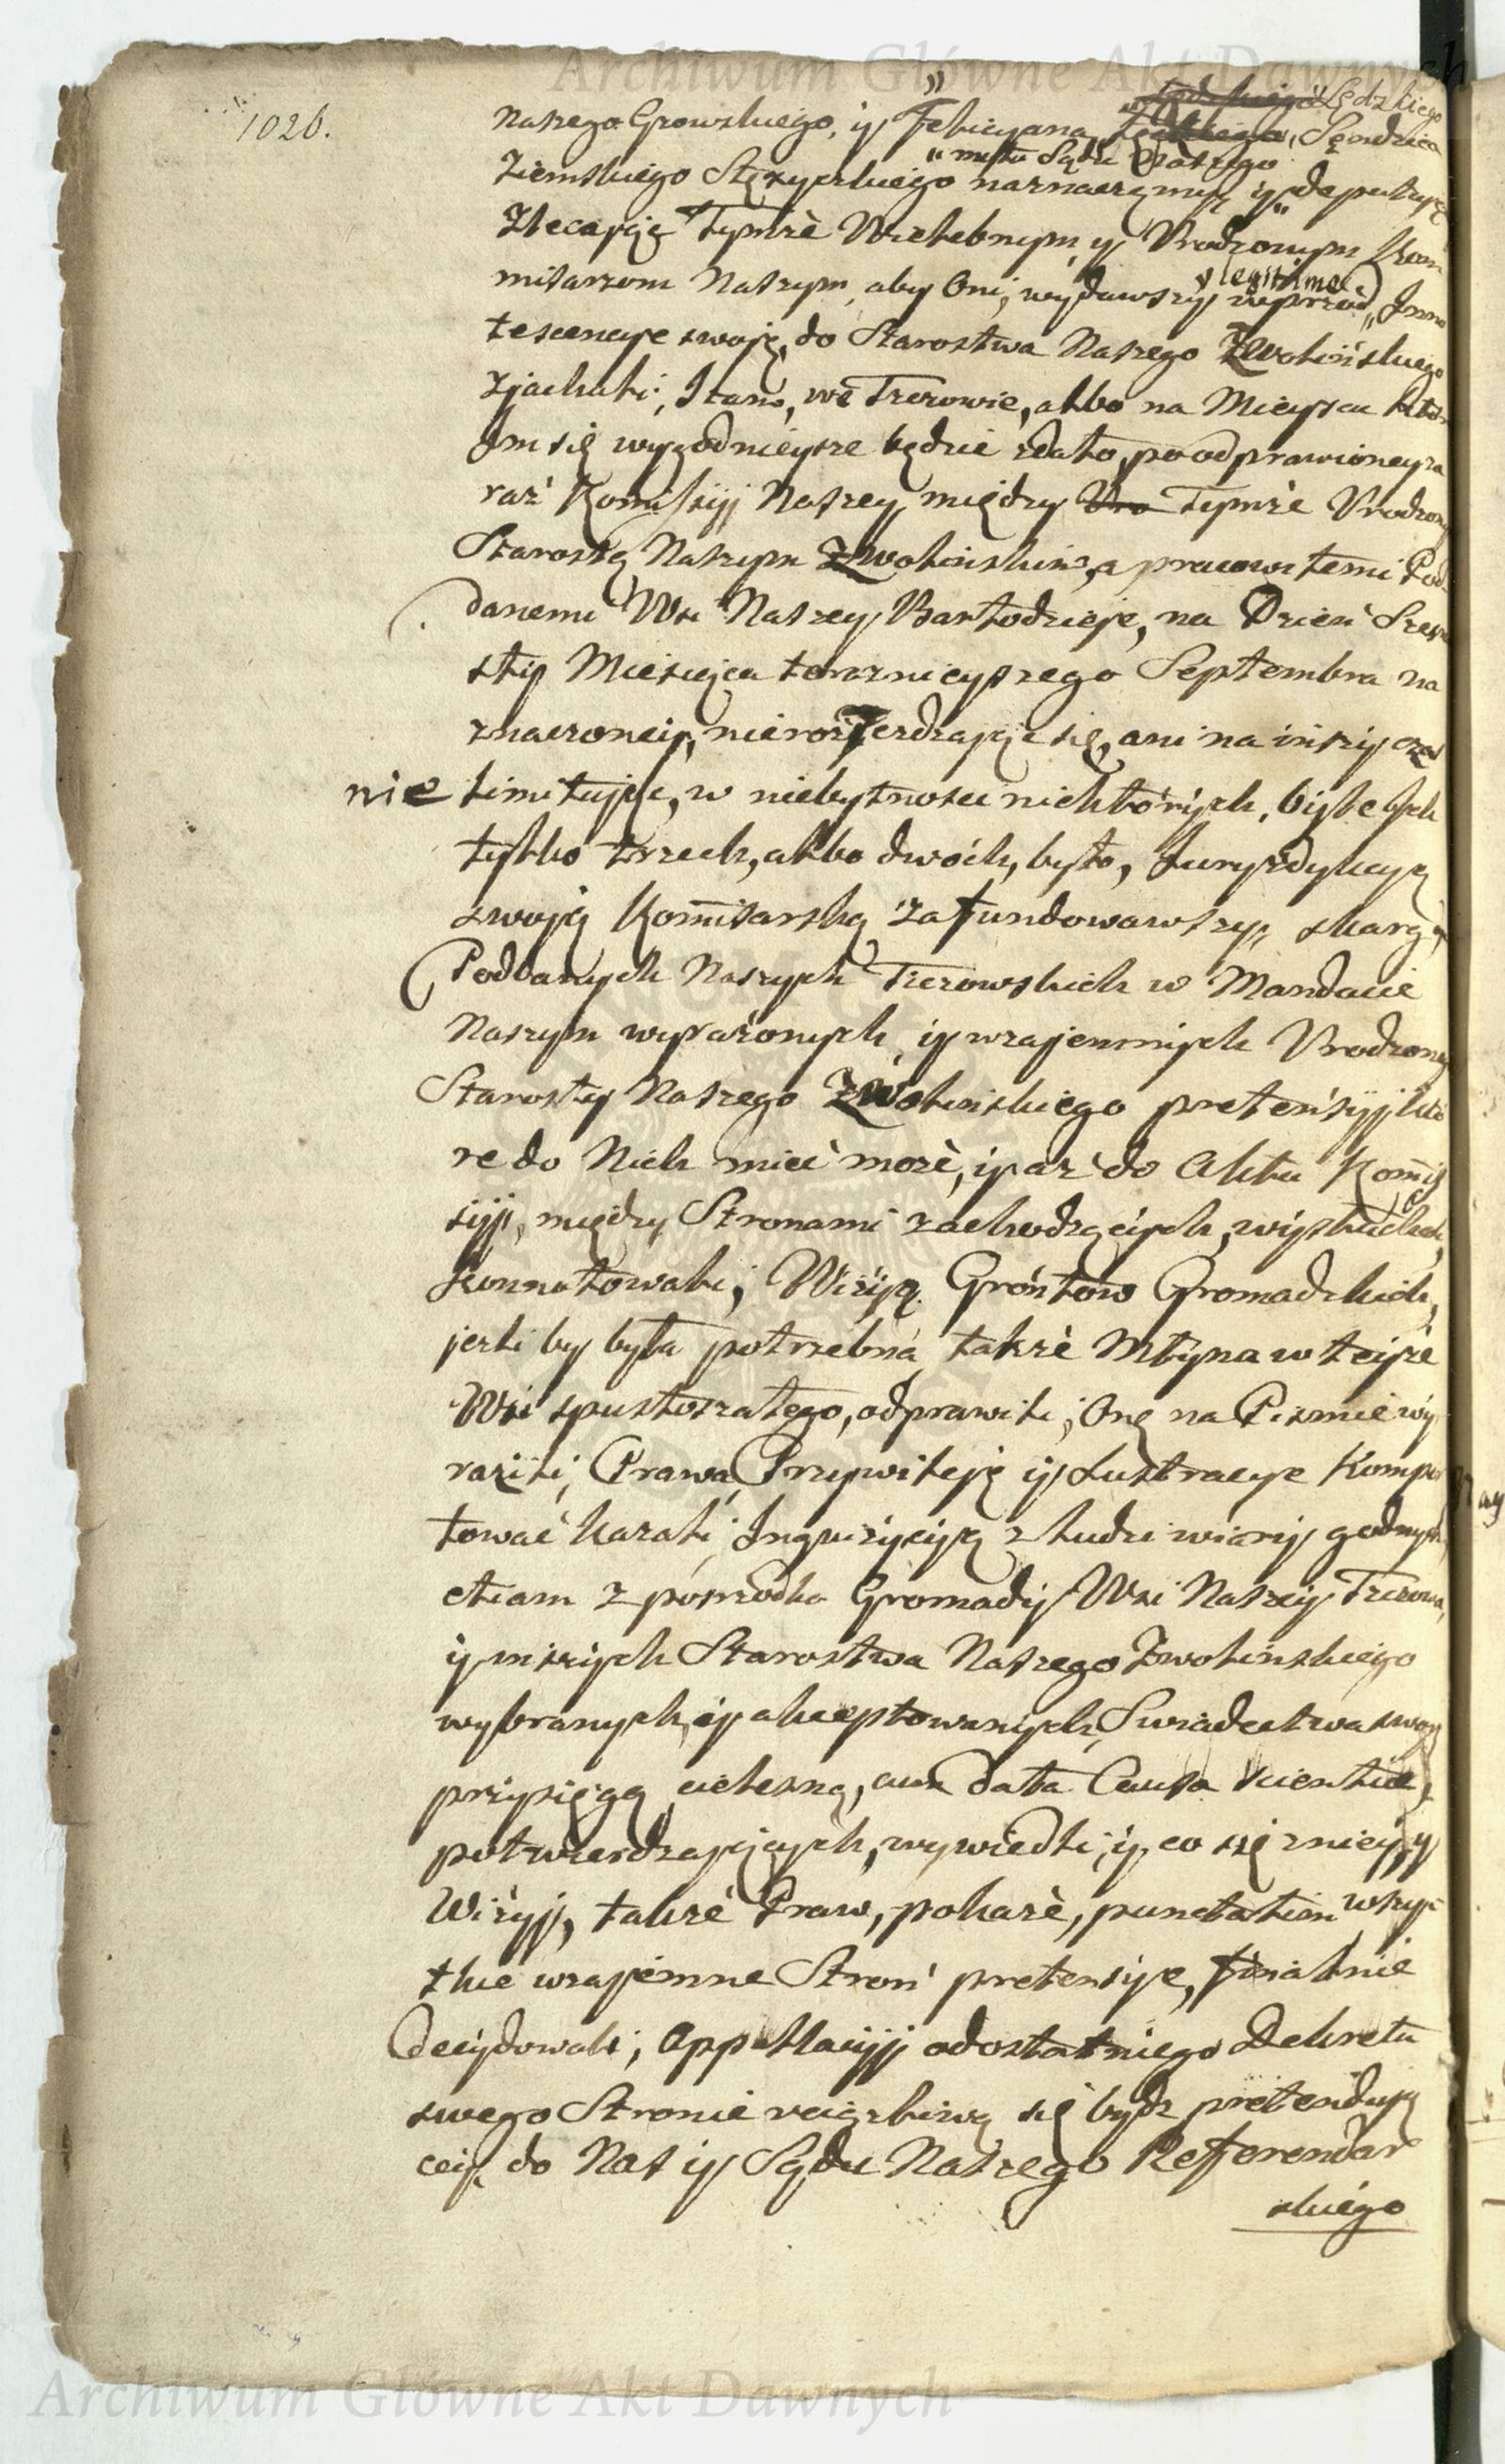 Archiwum Główne Akt Dawnych
1026.
Naszego Growskiego, y Felicyana Sędzkiego, Sęndzica
Ziemskiego Stężyckiego naznaczamy y deputuję
mieś Sądu Naszego
Zlecając Tymże Wielebnym, y Urodzonym Kom
missarzom Naszym, aby Oni, wydawszy wprzód Inno
legitime
tescencyje swoję, do Starostwa Naszego Zwolińskiego
Zjachali, I tam, we Tczowie, albo na Mieyscu któr
Im się wygodnieysze będzie zdało, po odprawioney za
raz Kommissyij Naszey, między Uro Tymże Urodzony
Starostą Naszym Zwolińskim, a pracowitemi Pod
danemi Wsi Naszey Bartodzieje, na Dzień Szes
sty Miesiąca teraznieyszego Septembra na
znaczoney, nierozjezdzając się, ani na inszy czas
nie limitując, w niebytności niektórych, byle ych
tylko trzech, albo dwóch, było, Juryzdykcyą
swoją Kommisarską zafundowawszy, skargę
Poddanych Naszych Tczowskich w Mandacie
Naszym wyrażonych, y wzajemnych Urodzoneg
Starosty Naszego Zwolińskiego pretensyji któ
re do Nich mieć może, y aż do Aktu Kommis
syji, między Stronami zachodzących, wysłuchali,
konnotowali; Wizyją Gróntów Gromadzkich,
jezli by była potrzebna, także Młyna w teyże
Wsi spustoszałego, odprawili, Onę na Pismie wy
razili, Prawa, Przywileję y Lustracye Kompor
tować kazali, Inqwizycyją z ludzi wiary godnych
etiam z pośrodka Gromady Wsi Naszey Tczowa,
y inszych Starostwa Naszego Zwolińskiego
wybranych, y akceptowanych, Swiadectwa swoj
przysięgą cielesną, cum data Causa scientiae,
potwierdzających, wywiedli, y, co się zniey, y
Wizyji, także Praw, pokaże, punctatim wszys
tkie wzajemne Stron pretensyje, finalnie
decydowali, Appellacyji od ostatniego Dekretu
swego Stronie uciążliwą się bydz pretendują
cey, do Nas y Sądu Naszego Refferendar
skiego
Archiwum Główne Akt Dawnych